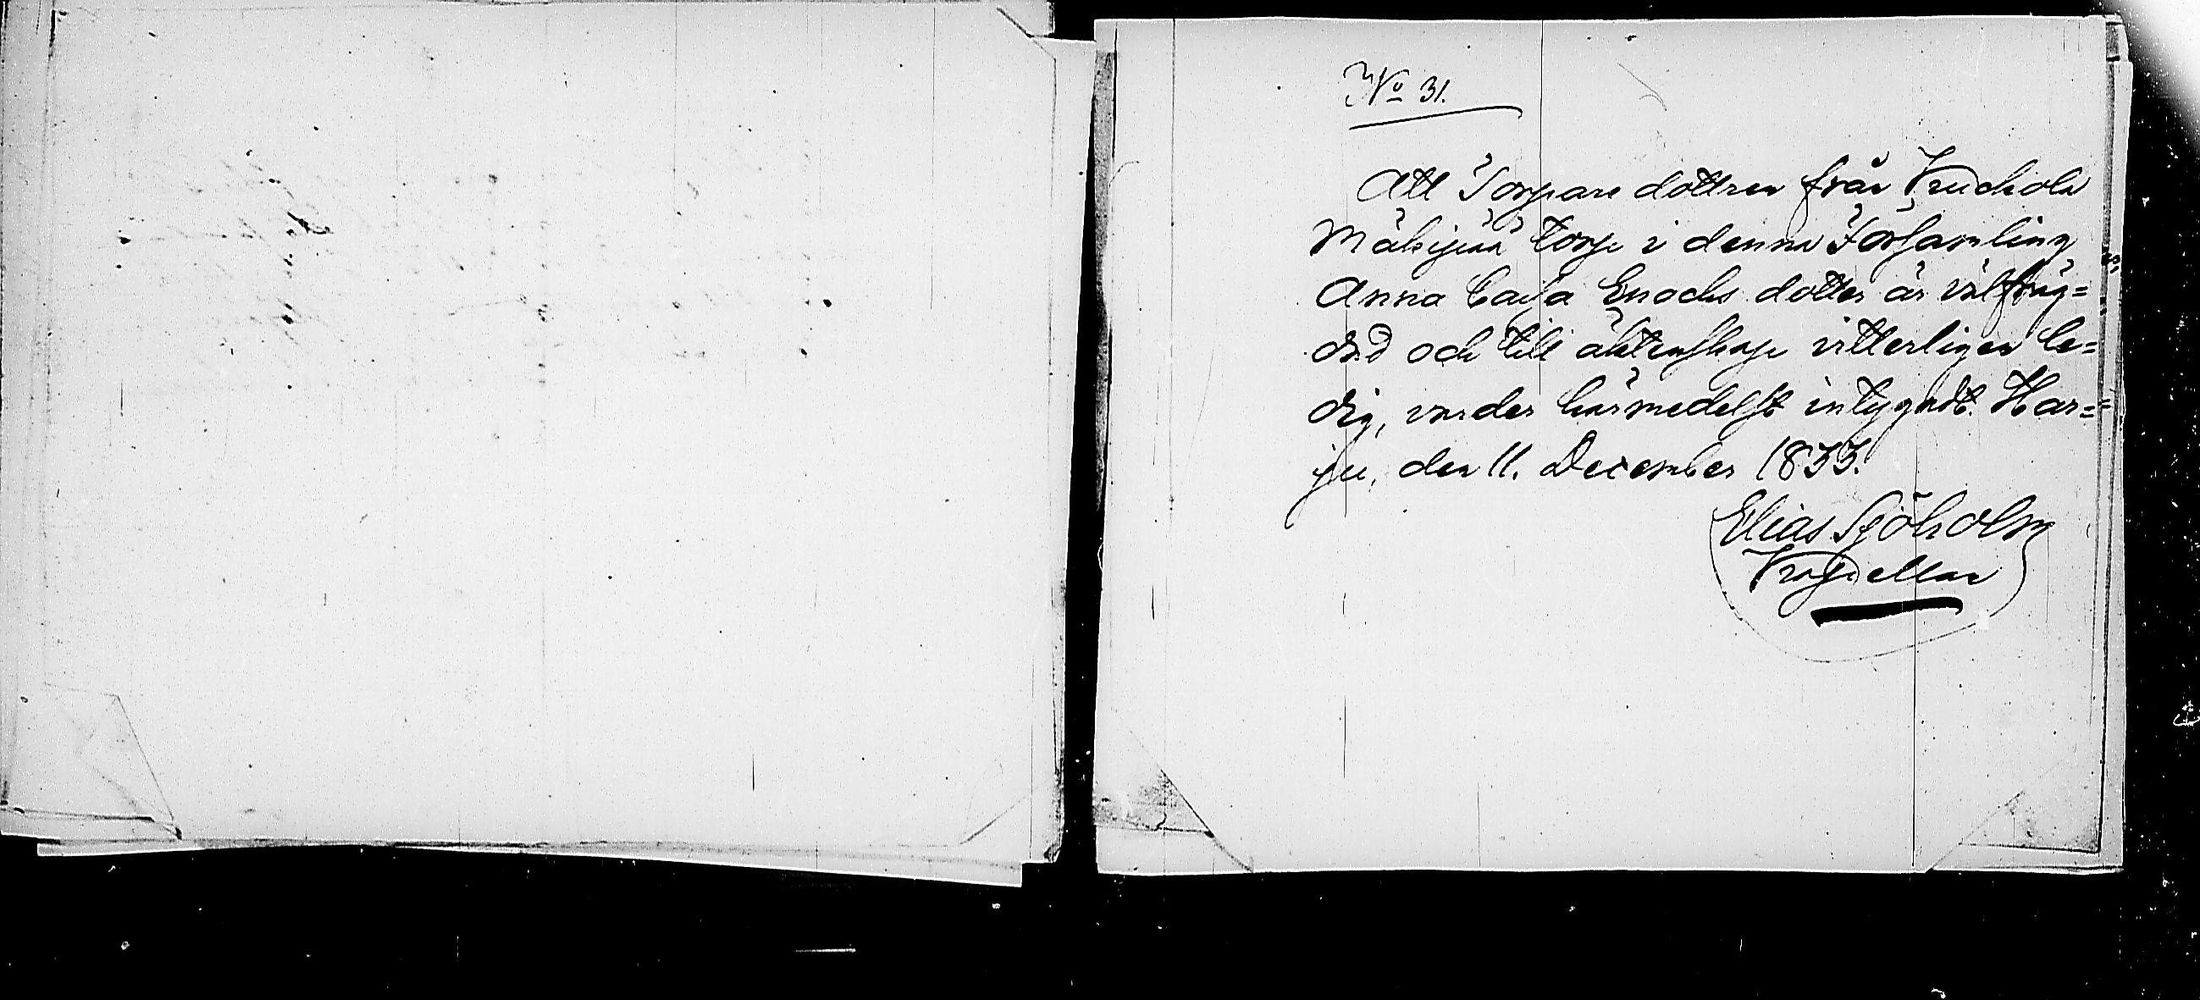 No 31.
Att Torpare dottren från
Mäkipää torp i denna Församling
Anna Caisa Enochs dotter är välfräg=
dad och till äktenskap vitterligen le=
dig, varder härmedelst intygadt. Har=
ju, den 11. December 1833.
Elias Sjöholm